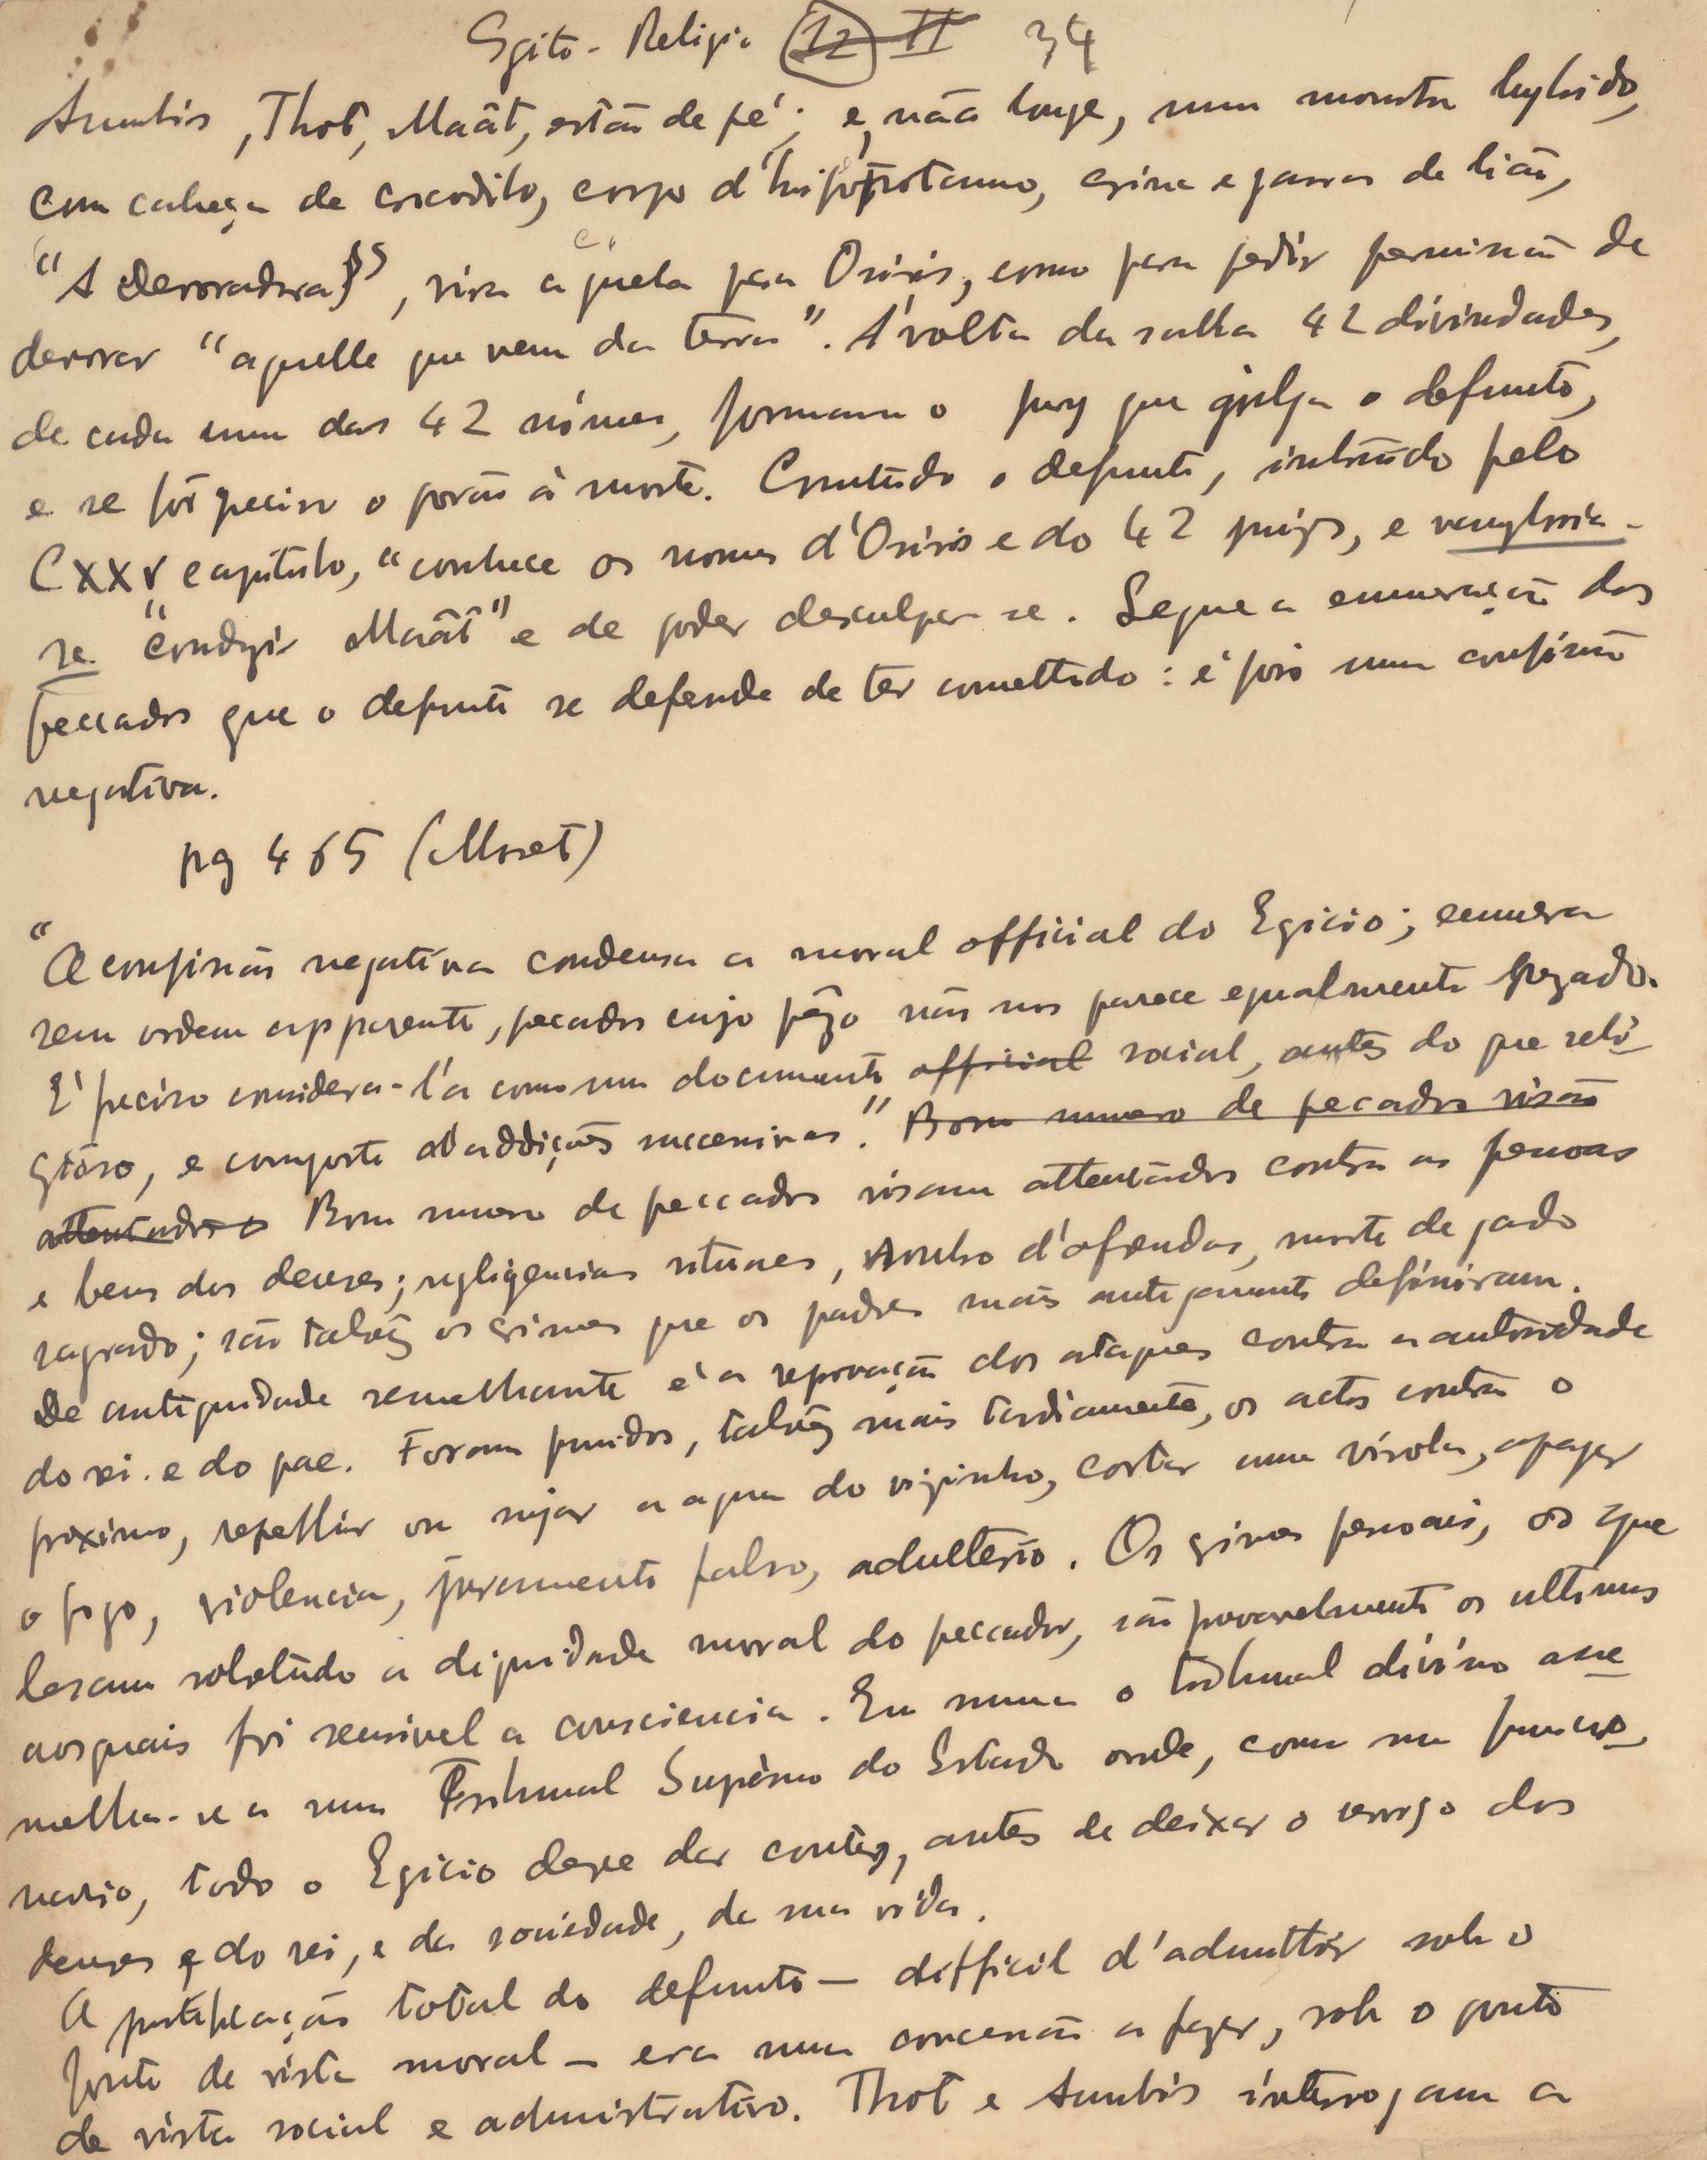 Egito - Religião 12 II 34
Anubis, Thot, Maât, estão de pé; e, não longe, um monstro hybrido,
com cabeça de crocodilo, corpo d'hippopotamo, crina e garras de lião,
"A Devoradora", vira a guela para Osiris, como para pedir permissão de
devorar "aquelle que vem da terra". A' volta da salla 42 divindades,
de cada um dos 42 nómes, formam o jury que julga o defunto,
e se fôr preciso o porão à morte. Comtudo o defunto, instruido pelo
CXXV capitulo, "conhece os nomes d'Osiris e do 42 juizes, e vangloria-
se "conduzir Maât" e de poder desculpar-se. Segue a enumeração dos
peccados que o defunto se defende de ter comettido: é pois uma confissão
negativa.
pg 465 (Moret)
"A confissão negativa condensa a moral official do Egicio; enumera
sem ordem apparente, pecados cujo pêzo não nos parece egualmente pezado.
E' preciso considera-l'a como um documento official social, antes do que reli-
gioso, e comporta addições successivas." Bom numero de pecados visão
attentados Bom numero de peccados visam attentados contra as pessoas
e bens dos deuses; negligencias rituaes, roubo d'ofrendas, morte de gado
sagrado; são talvêz os crimes que os padres mais antigamente definiram.
De antiguidade semelhante é a reprovação dos ataques contra a autoridade
do rei e do pae. Foram punidos, talvêz mais tardiamente, os actos contra o
proximo, repellir ou sujar a agua do vizinho, cortar uma vinola, apagar
o fogo, violencia, juramento falso, adulterio. Os crimes pessoais, os que
lesam sobretudo a dignidade moral do peccador, são provavelmente os ultimos
aos quais foi sensivel a consciencia. Em suma o tribunal divino asse-
melha-se a um Tribunal Suprêmo do Estado onde, como um funccio-
nario, todo o Egicio deve dar contas, antes de deixar o serviço dos
deuses e do rei, e da sociedade, da sua vida.
A justificação total do defunto — difficil d'admittir sob o
ponto de vista moral — era uma concessão a fazer, sob o ponto
de vista social e administrativo. Thot e Anubis interrogam a